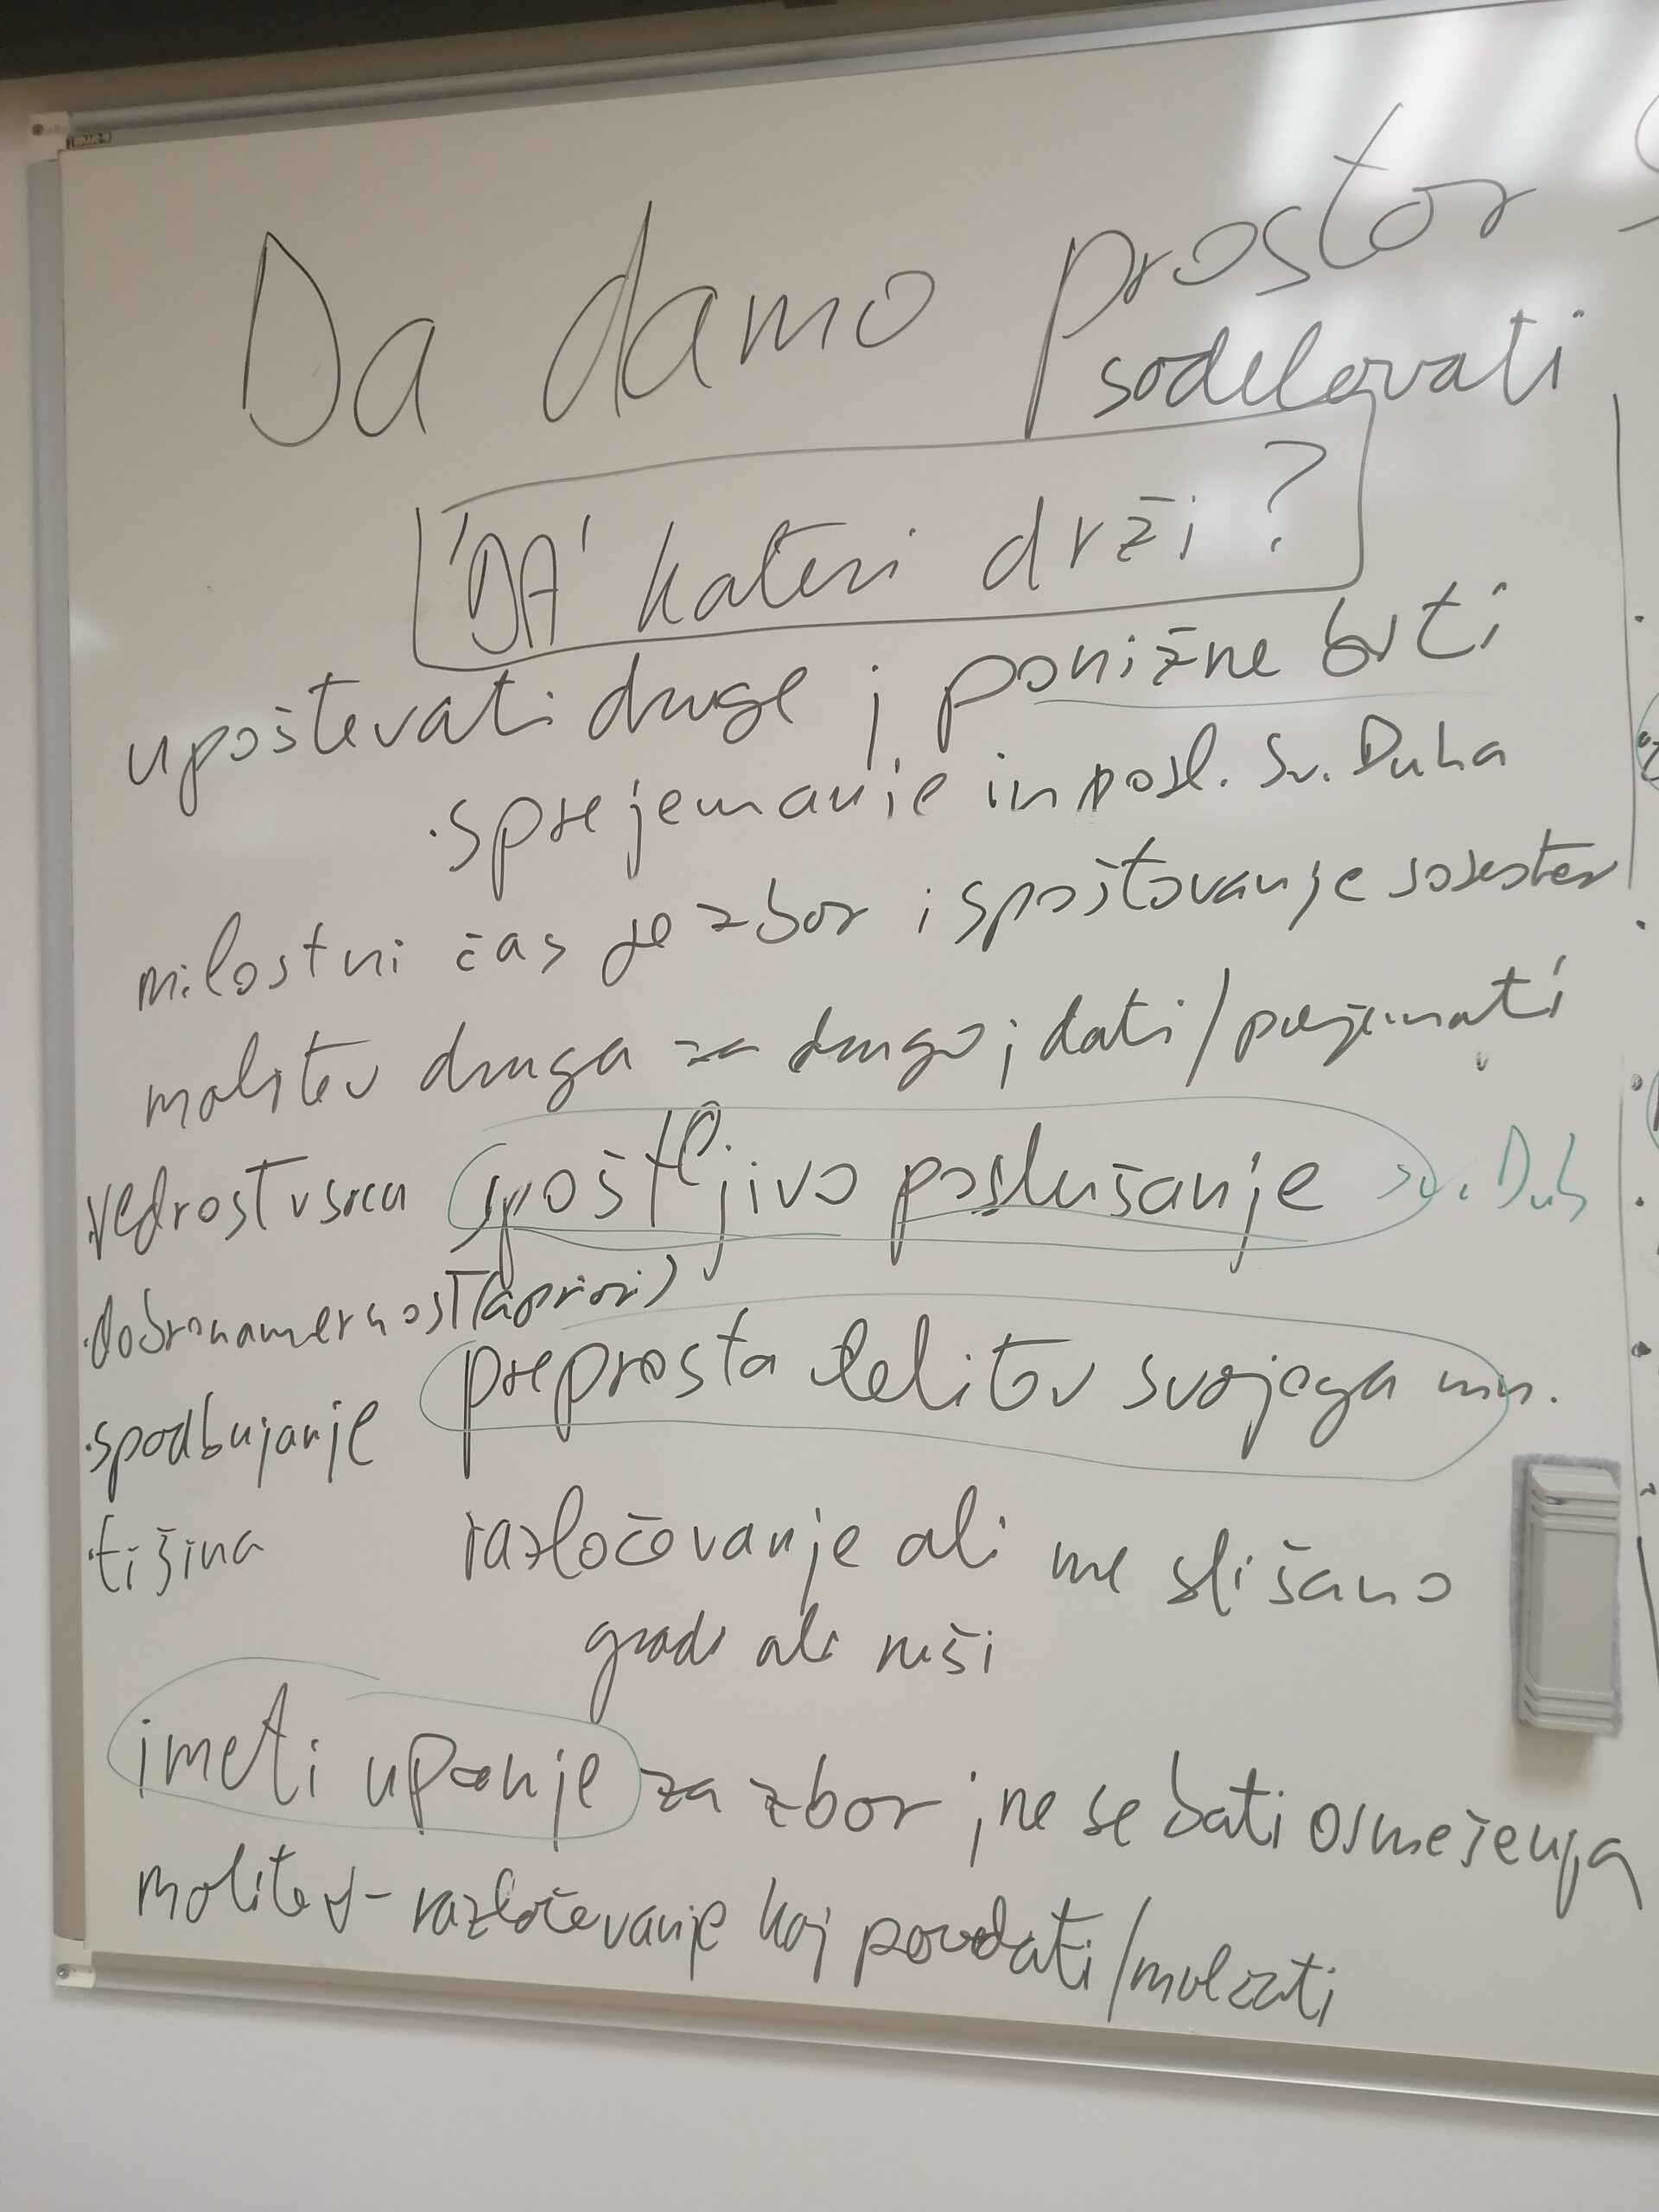 Da damo prostor
sodelovati
'DA' kateri drži?
upoštevati druge ; ponižne biti
· sprejemanje in posl. Sv. Duha
milostni čas je zbor ; spoštovanje sosester
molitev druga za drugo ; dati / prejemati
· vedrost v srcu
spoštljivo poslušanje sv. Duh
· dobronamernost (apriori)
preprosta delitev svojega mn.
· spodbujanje
· tišina
razločovanje ali me slišano
gradi ali ruši
imeti upanje za zbor ; ne se bati osmešenja
molitev - razločevanje kaj povedati / molčati